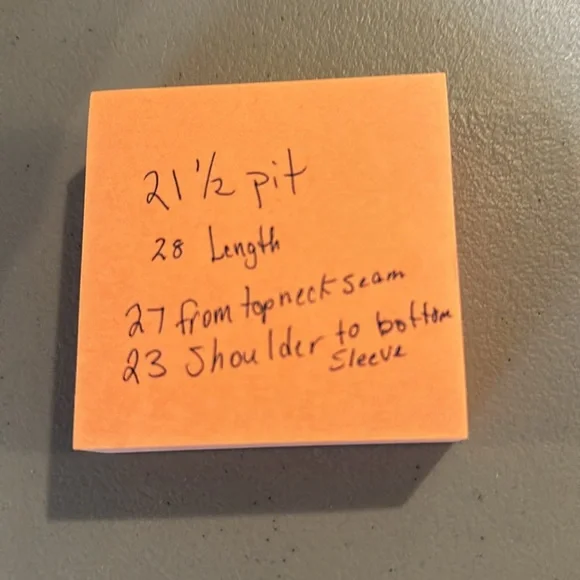 21 1/2 pit
28 Length
27 from top neck seam
23 Shoulder to bottom
Sleeve